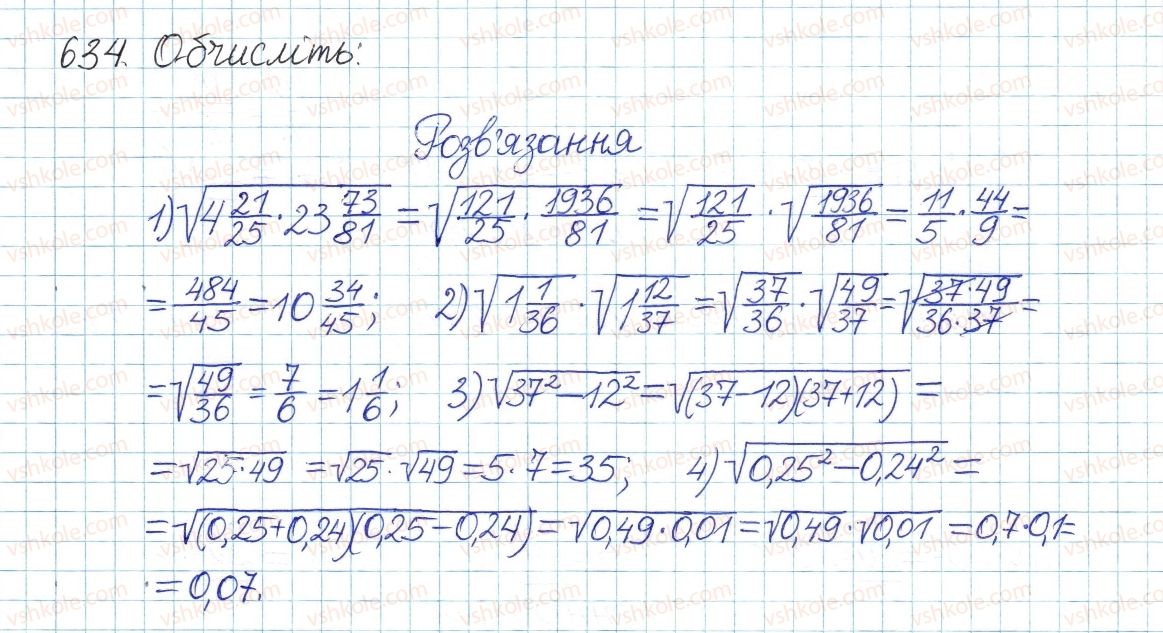 634. Обчисліть:
Розв'язання
1) √(4 21/25 · 23 73/81) = √(121/25 · 1936/81) = √(121/25) · √(1936/81) = 11/5 · 44/9 =
= 484/45 = 10 34/45; 2) √(1 1/36) · √(1 12/37) = √(37/36) · √(49/37) = √((37·49)/(36·37)) =
= √(49/36) = 7/6 = 1 1/6; 3) √(37² − 12²) = √((37−12)(37+12)) =
= √(25·49) = √25 · √49 = 5 · 7 = 35; 4) √(0,25² − 0,24²) =
= √((0,25+0,24)(0,25−0,24)) = √(0,49 · 0,01) = √0,49 · √0,01 = 0,7 · 0,1 =
= 0,07.
vshkole.com